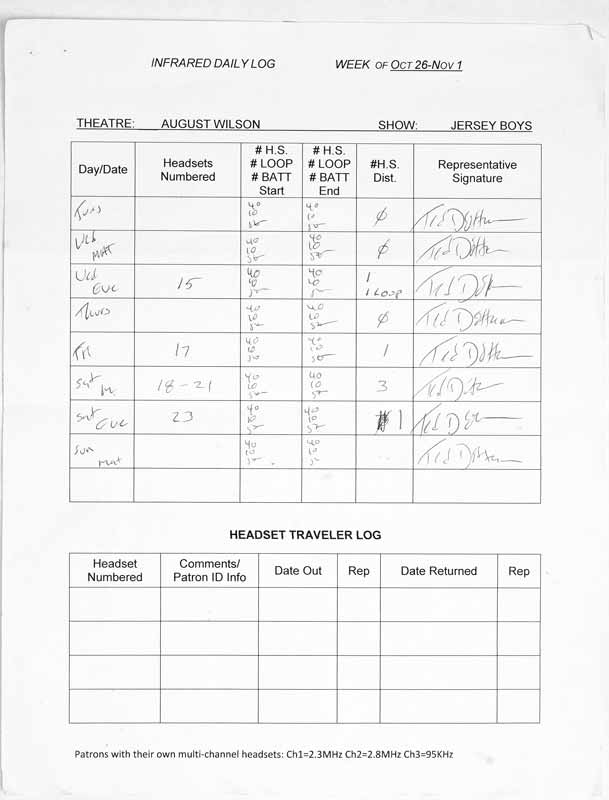 INFRARED DAILY LOG WEEK OF OCT 26-NOV 1
THEATRE: AUGUST WILSON SHOW: JERSEY BOYS
Day/Date Headsets Numbered # H.S. # LOOP # BATT Start # H.S. # LOOP # BATT End #H.S. Dist. Representative Signature
Tues 40 10 50 40 10 50 ∅ Ted
Wed Matt 40 10 50 40 10 50 ∅ Ted
Wed Eve 15 40 10 50 40 10 50 1 1 Loop Ted
Thurs 40 10 50 40 10 50 ∅ Ted
Fri 17 40 10 50 40 10 50 1 Ted
Sat M. 18-21 40 10 50 40 10 50 3 Ted
Sat Eve 23 40 10 40 10 1 Ted
Sun Mat 40 10 50 40 10 50 Ted
HEADSET TRAVELER LOG
Headset Numbered Comments/ Patron ID Info Date Out Rep Date Returned Rep
Patrons with their own multi-channel headsets: Ch1=2.3MHz Ch2=2.8MHz Ch3=95KHz